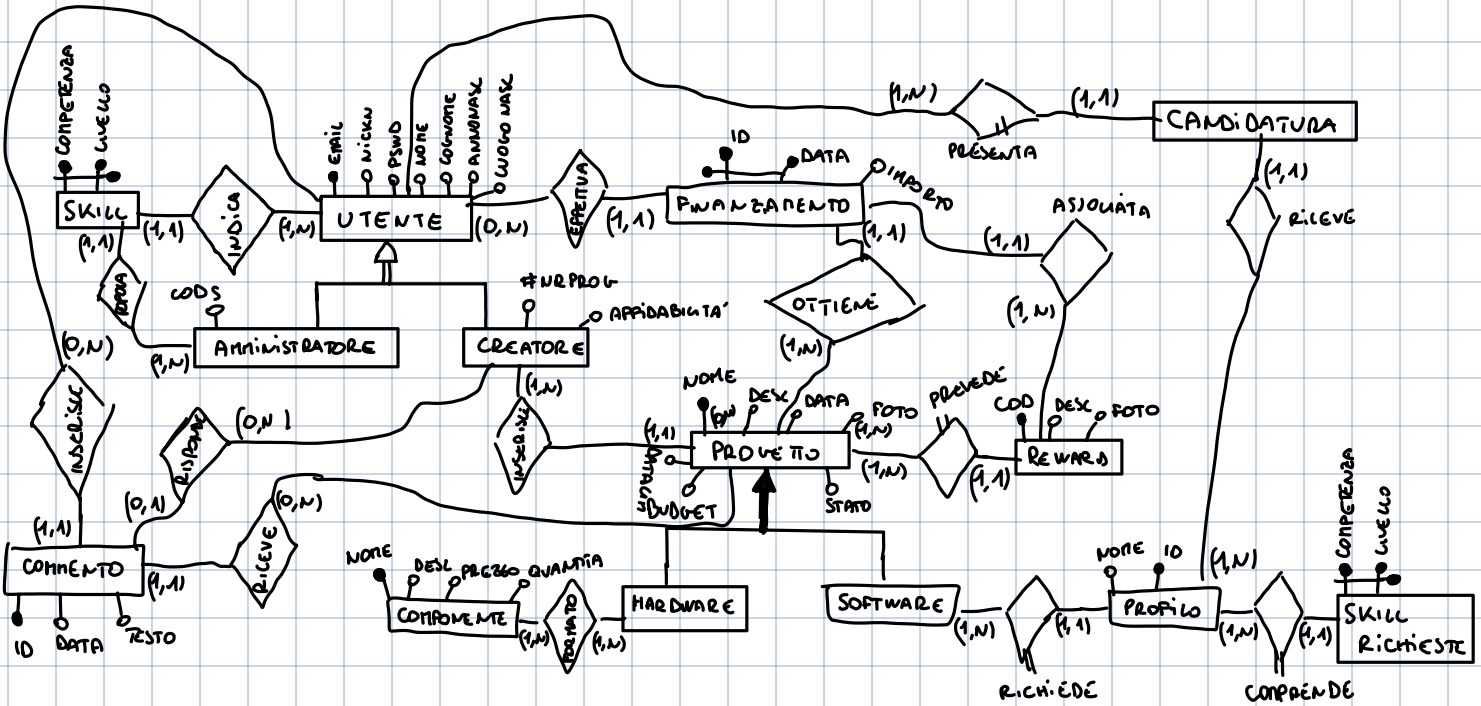 COMPETENZA
LIVELLO
SKILL
(1,1)
(1,1)
INDICA
(1,N)
EMAIL
NICKN
PSWD
NOME
COGNOME
ANNONASC
LUOGO NASC
UTENTE
(0,N)
EFFETTUA
(1,1)
ID
DATA
IMPORTO
FINANZIAMENTO
(1,1)
(1,N)
PRESENTA
(1,1)
CANDIDATURA
(1,1)
RICEVE
(1,1)
ASSOCIATA
(1,N)
OTTIENE
(1,N)
POPOLA
CODS
(1,N)
AMMINISTRATORE
#NRPROG
AFFIDABILITA'
CREATORE
(1,N)
(0,N)
INSERISCE
RISPONDE
(0,N)
INSERISCE
(1,1)
NOME
(0,N)
DESC
DATA
FOTO
(1,N)
PROGETTO
BUDGET
STATO
(1,N)
PREVEDE
(1,1)
COD
DESC
FOTO
REWARD
(0,1)
(1,1)
(0,N)
RICEVE
COMMENTO
(1,1)
ID
DATA
TESTO
NOME
DESC
PREZZO
QUANTITA
COMPONENTE
(1,N)
FORMATO
(1,N)
HARDWARE
SOFTWARE
(1,N)
RICHIEDE
(1,1)
NOME
ID
PROFILO
(1,N)
(1,N)
COMPRENDE
(1,1)
COMPETENZA
LIVELLO
SKILL
RICHIESTE